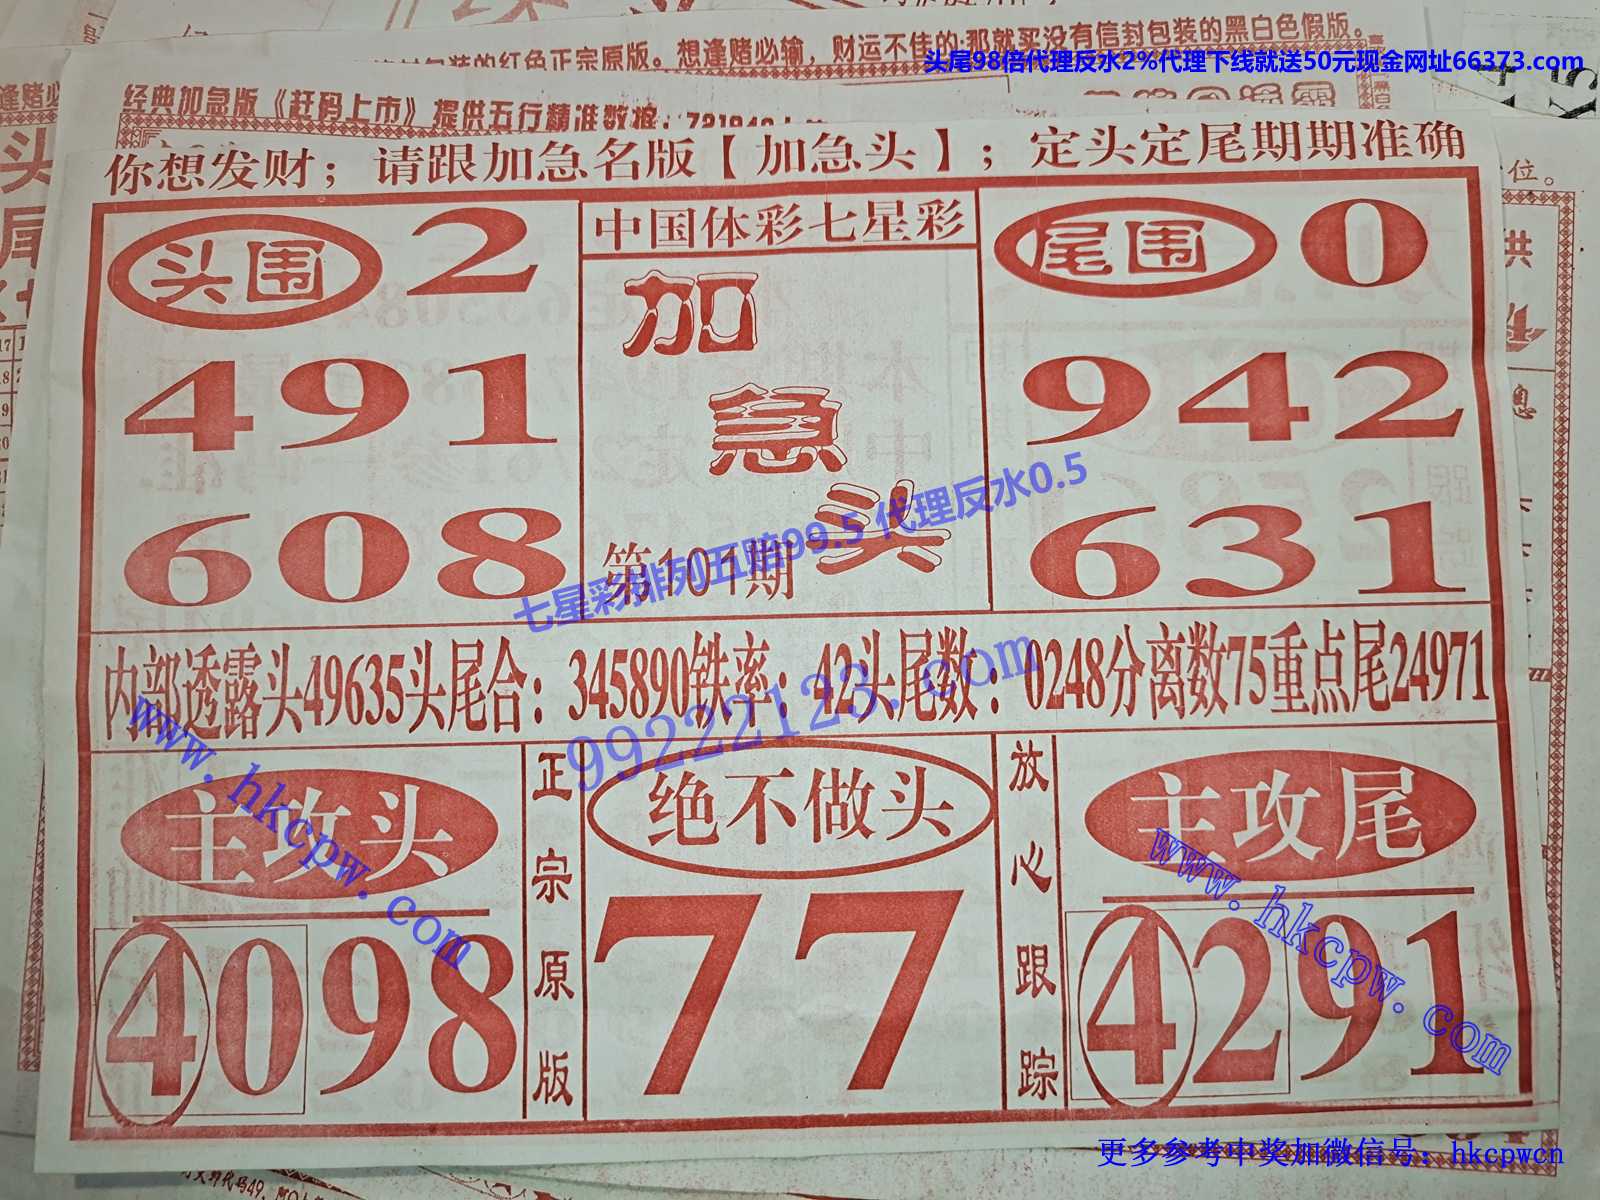 封包装的红色正宗原版。想逢赌必输，财运不佳的:那就买没有信封包装的黑白色假版。
头尾98倍代理反水2%代理下线就送50元现金网址66373.com
逢赌必
经典加急版《赶码上市》提供五行精准数据:
你想发财；请跟加急名版【加急头】；定头定尾期期准确
位。
头围 2
491
608
中国体彩七星彩
加
急
头
第101期
尾围 0
942
631
七星彩排列五赔99.5 代理反水0.5
内部透露头49635头尾合：345890铁率：42头尾数：0248分离数75重点尾24971
99222123.com
www.hkcpw.com
主攻头
4098
正宗原版
绝不做头
77
放心跟踪
主攻尾
4291
www.hkcpw.com
更多参考中奖加微信号：hkcpwcn